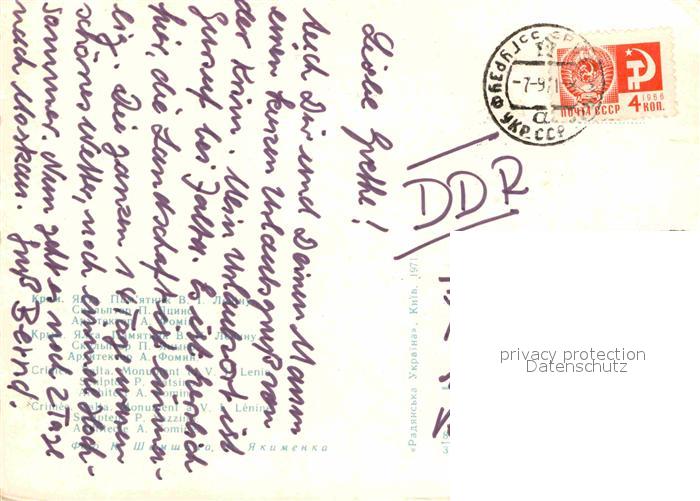 Liebe Grethe!
Auch Dir und Deinem Mann
einen kurzen Urlaubsgruß von
der Krim. Mein Urlaubsort ist
Gursuf bei Jalta. Es ist herrlich
hier, die Landschaft ist einma-
lig. Die ganzen 14 Tage waren
schönes Wetter, noch immer Hoch-
sommer. Nun geht es noch 2 Tage
nach Moskau. Gruß Bernd.
DDR
ГУРЗУФ УКР.ССР
-7-9 71
а
1966
4 КОП.
ПОЧТА СССР
Крим. Ялта. Пам'ятник В. І. Леніну
Скульптор П. Яцино
Архітектор А. Фомін
Крым. Ялта. Памятник В. И. Ленину
Скульптор П.
Архитектор А. Фомин
Crimea. Yalta. Monument to V. I. Lenin
Sculptor P. Yatsino
Architect A. Fomin
Crimée. Yalta. Monument à V. I. Lénine
Sculpteur P.
Architecte A. Fomine
Фото К. Шамшина, Якименка
«Радянська Україна», Київ, 1971
privacy protection
Datenschutz